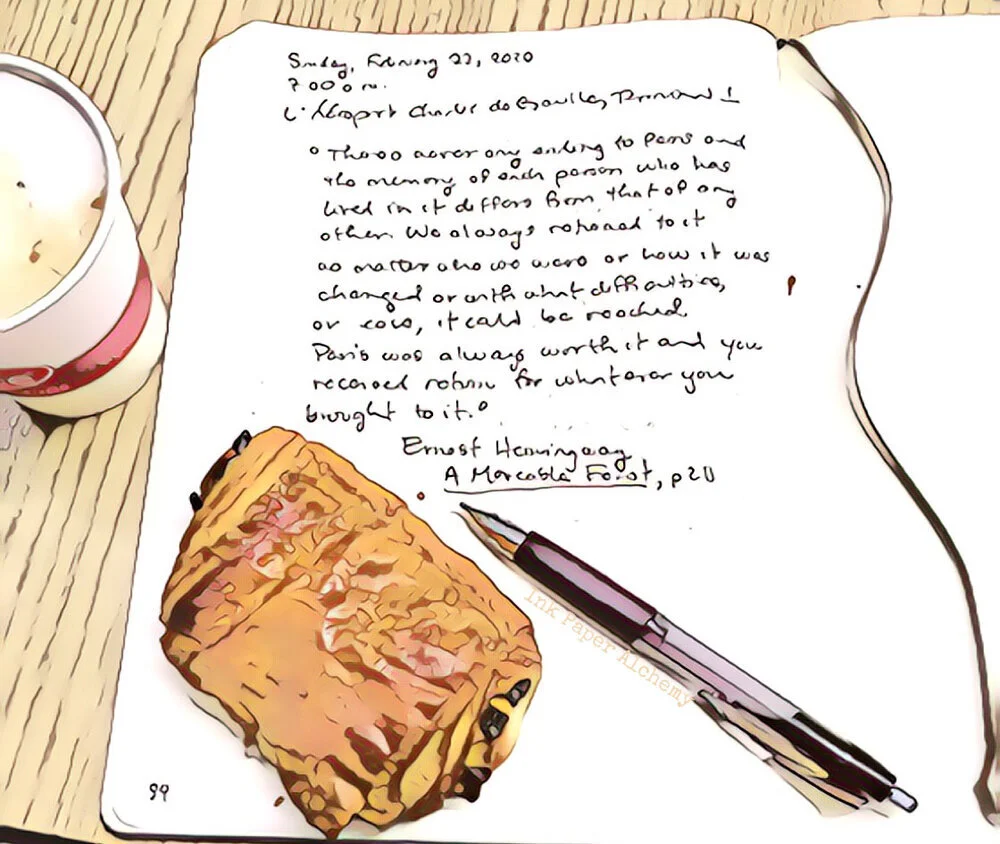 Sunday, February 23, 2020
7 00 a m.
L'Aéroport Charles de Gaulle, Terminal 1
"There is never any ending to Paris and
the memory of each person who has
lived in it differs from that of any
other. We always returned to it
no matter who we were or how it was
changed or with what difficulties,
or ease, it could be reached.
Paris was always worth it and you
received return for whatever you
brought to it."
Ernest Hemingway
A Moveable Feast,
Ink Paper Alchemy
89